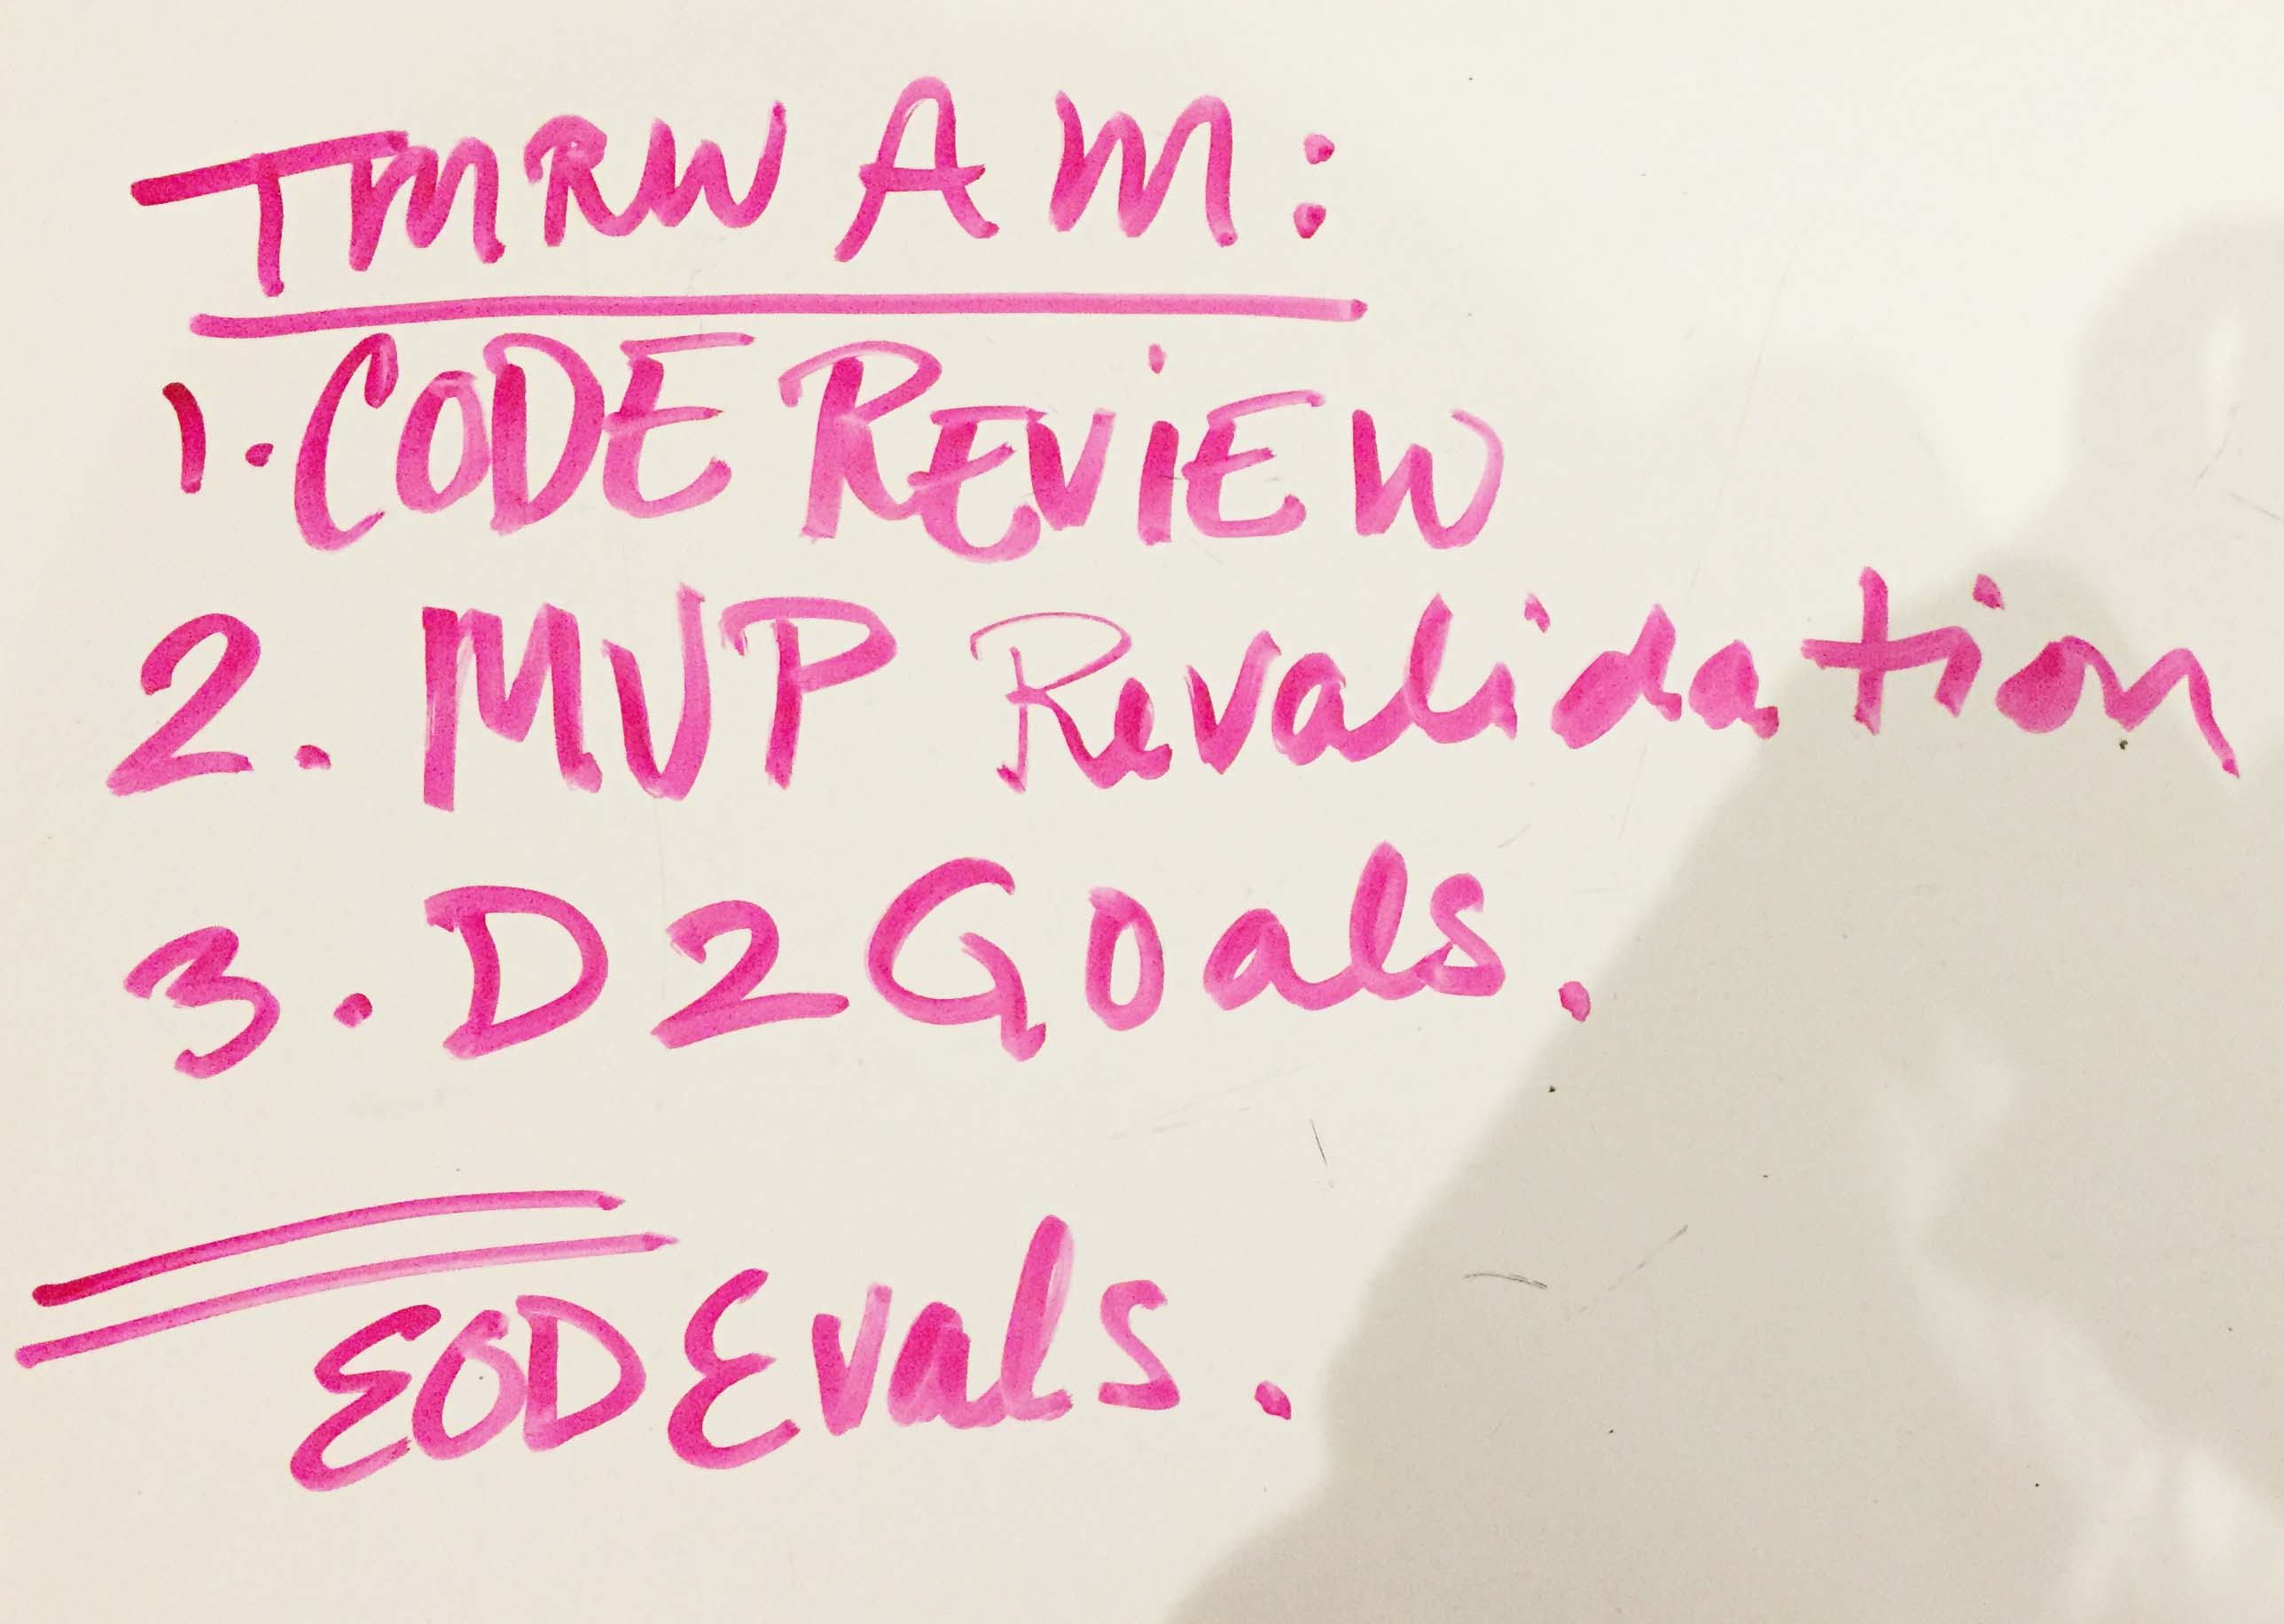 TMRW AM:
1. CODE REVIEW
2. MVP Revalidation
3. D2 Goals.
EOD Evals.